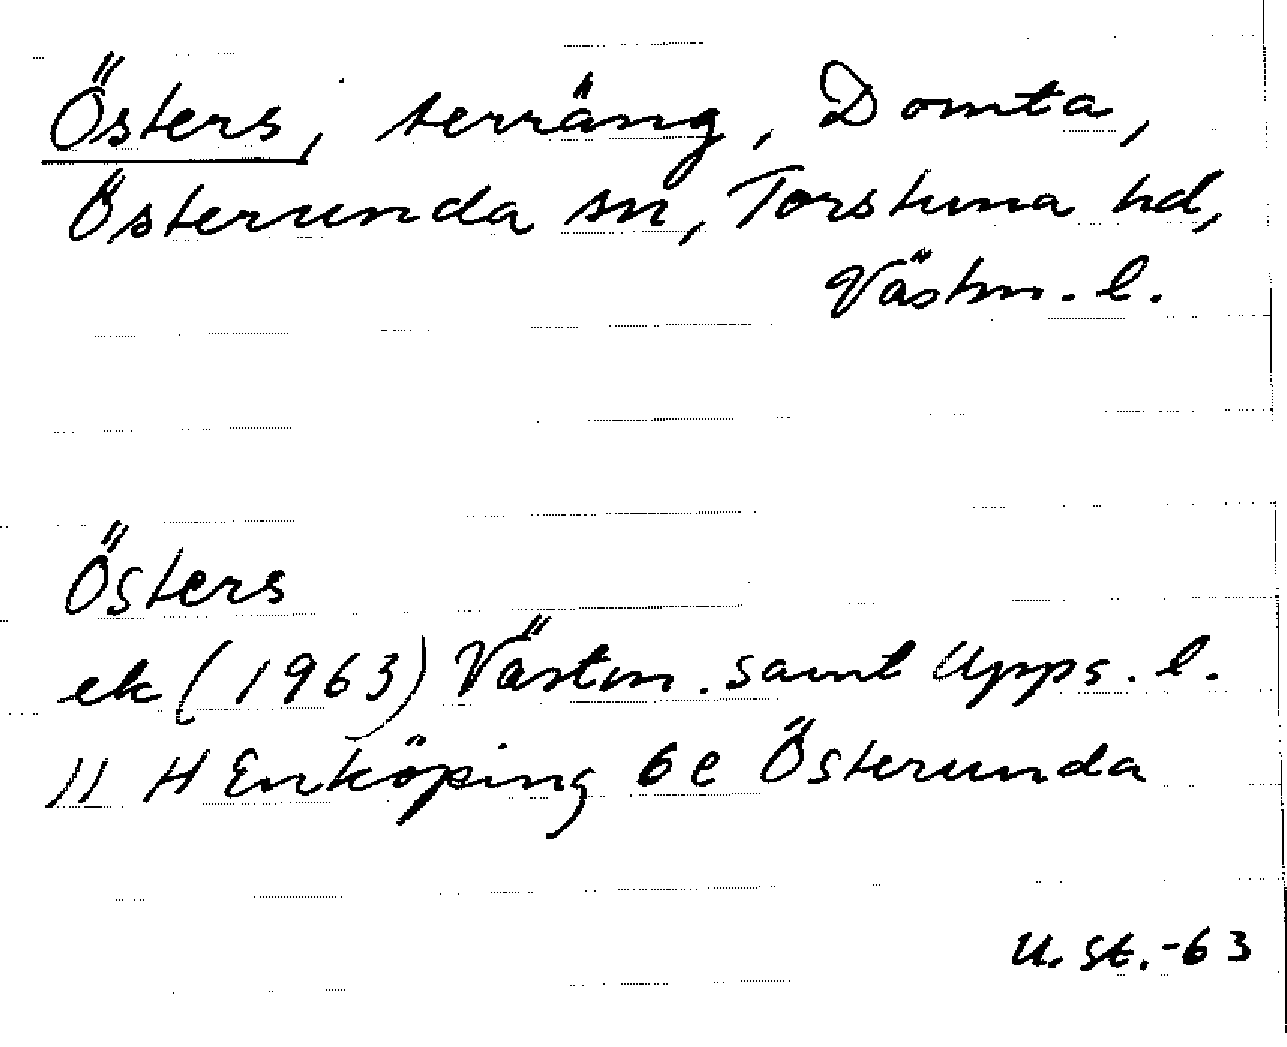 Östers, terräng, Domta,
Österunda sn, Torstuna hd,
Västm. l.
Östers
ek (1963) Västm. samt Upps. l.
11 H Enköping 6e Österunda
U. St. -63